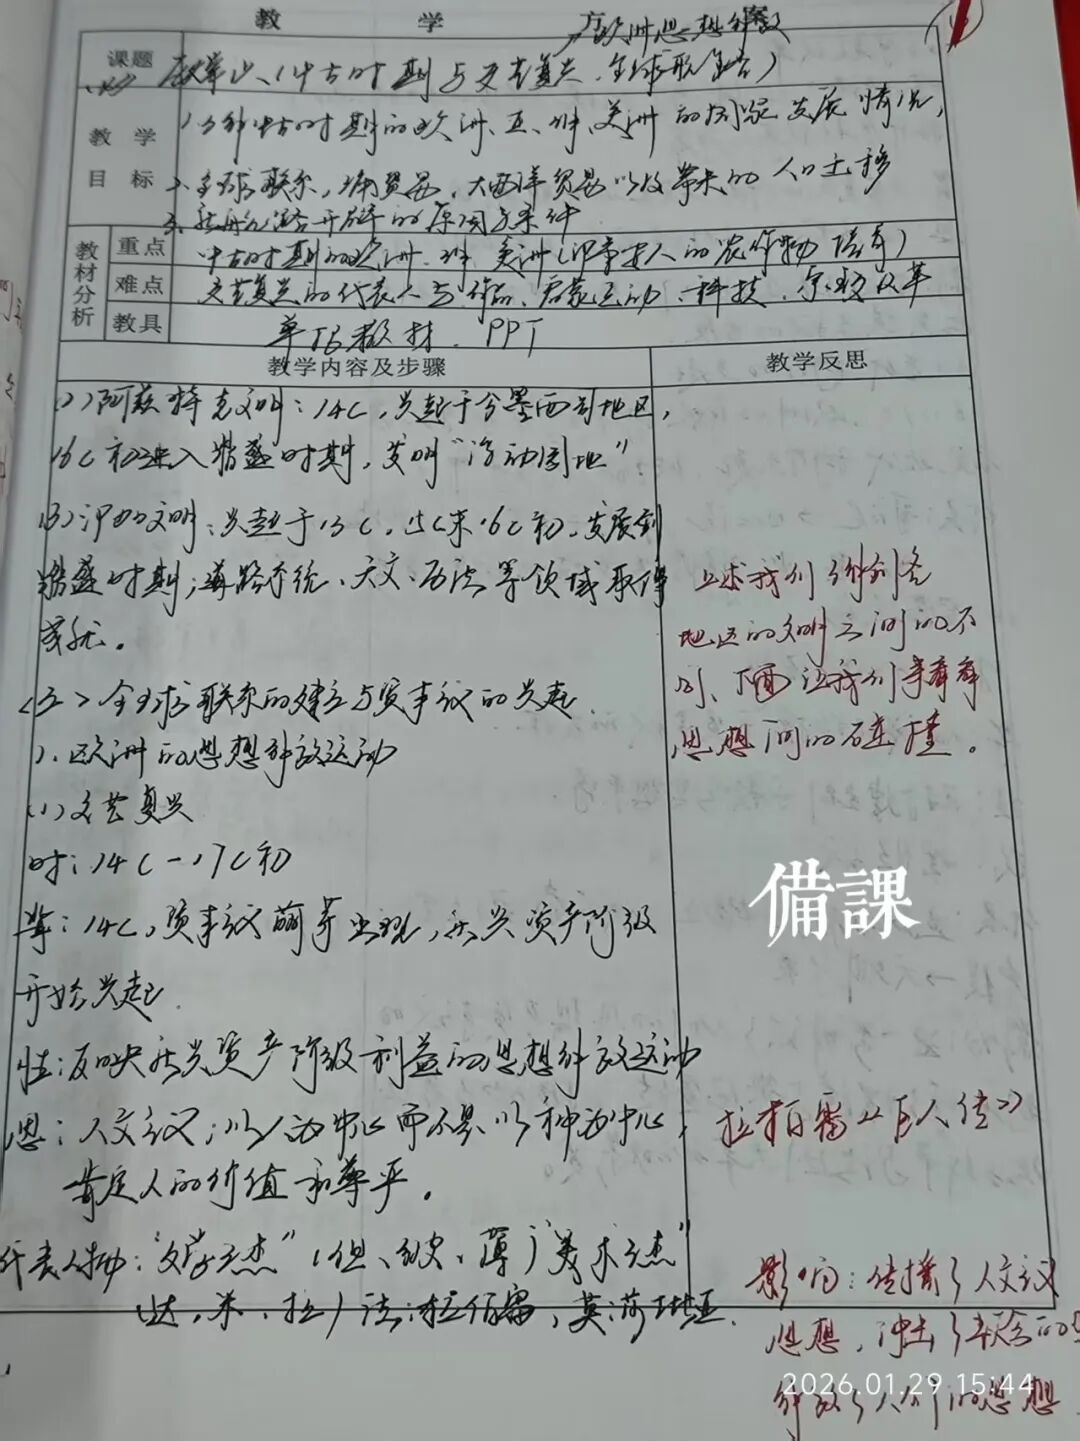 教 学 方 案
欧洲思想解放
课题
(中古时期与文艺复兴、全球联系)
教 学
目 标
1.了解中古时期的欧洲、亚、非、美洲的国家发展情况,
2.全球联系,三角贸易,大西洋贸易以及带来的人口迁移
3.新航路开辟的原因与条件
教材分析
重点
中古时期的欧洲、非、美洲(印第安人的农作物培育)
难点
文艺复兴的代表人与作品、启蒙运动、科技、宗教改革
教具
单招教材、PPT
教学内容及步骤
教学反思
(2)阿兹特克文明:14C,兴起于今墨西哥地区,
16C初进入鼎盛时期,发明“浮动园地”
(3)印加文明:兴起于13C,15C末16C初,发展到
鼎盛时期;道路系统、天文、历法等领域取得
成就。
上述我们了解到各
地区的文明之间的不
同、下面让我们来看看
思想间的碰撞。
<五>全球联系的建立与资本主义的兴起
1、欧洲的思想解放运动
(1)文艺复兴
时:14C-17C初
背:14C,资本主义萌芽出现,新兴资产阶级
开始兴起
備課
性:反映新兴资产阶级利益的思想解放运动
思:人文主义:以人为中心而不是以神为中心,
肯定人的价值和尊严。
拉伯雷《巨人传》
代表人物:“文学三杰”(但、彼、薄)“美术三杰”
(达、米、拉)法:拉伯雷,英:莎士比亚.
影响:传播了人文主义
思想,冲击了
解放了人们的思想
2026.01.29 15:44